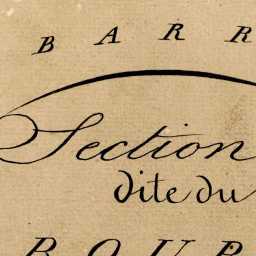 BARR
Section
dite du
ROUP